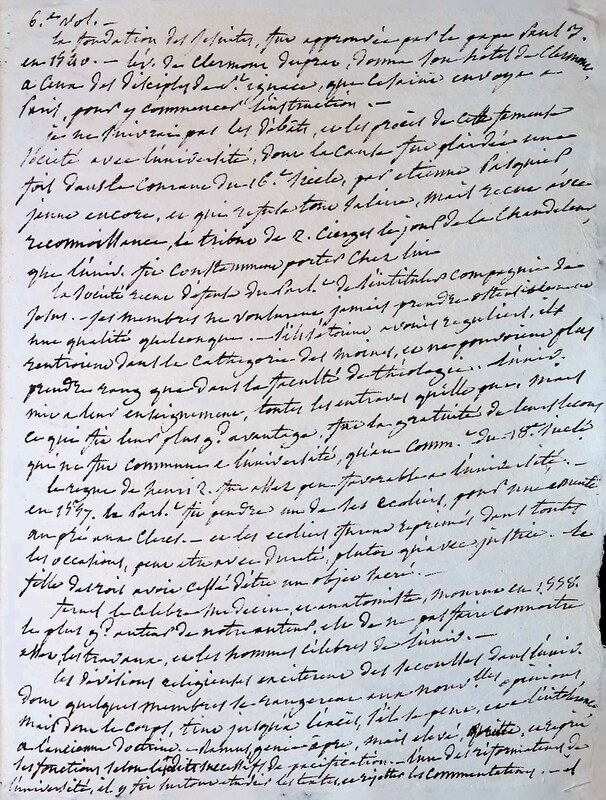 6.e vol. —
la fondation des Jesuites, fut approuvée par le pape Paul 3.
en 1540. — l'év. de Clermont duprat, donna son hotel de Clermont
a Ceux des disciples de s.t Ignace, que ce saint envoya a
Paris, pour y commencer l'instruction. —
je ne suivrai pas les débats, et les procès de cette fameuse
société avec l'université, dont la cause fut plaidée une
fois dans le courant du 16.e siècle, par etienne Pasquier
jeune encore, et qui refusa tout salaire, mais recut avec
reconnoissance, le tribut de 2. cierges le jour de la Chandeleur
que l'univ. fit constamment porter chez lui
la société recut défense du Parl.t de s'intituler compagnie de
Jesus. — ses membres ne voulurent jamais prendre ostensiblement
une qualité quelconque. — s'ils s'étoient avoués reguliers, ils
rentroient dans la cathegorie des moines, et ne pouvoient plus
prendre rang que dans la faculté de théologie. — l'univ.
mit a leur enseignement, toutes les entraves qu'elle put, mais
ce qui fit leur plus g.d avantage, fut la gratuité de leurs lecons
qui ne fut commune a l'université, qu'au comm.t du 18.e siecle
le regne de henri 2. fut assez peu favorable a l'université. —
en 1557. le Parl.t fit pendre un de ses ecoliers, pour une
au pré aux Clercs. — et les ecoliers furent reprimés dans toutes
les occasions, peut etre avec dureté, plutot qu'avec justice. — la
fille des rois avoit cessé d'etre un objet sacré. —
fernel le celebre medecin, et anatomiste, mourut en 1558.
le plus g.d de notre auteur, est de ne pas faire connoitre
assez, les travaux, et les hommes célèbres de l'univ. —
les divisions religieuses exciterent des secousses dans l'univ.
dont quelques membres se rangerent aux nouvelles opinions,
mais dont le corps, tint jusqu'a l'excès, s'il se peut, et a l'intolérance
a l'ancienne doctrine. — Ramus, genie âpre, mais elevé, quitta, et reprit
ses fonctions selon les édits successifs de pacification. — l'un des réformateurs de
l'université, il y fit surtout etudier les textes, et rejetter les commentateurs. — il